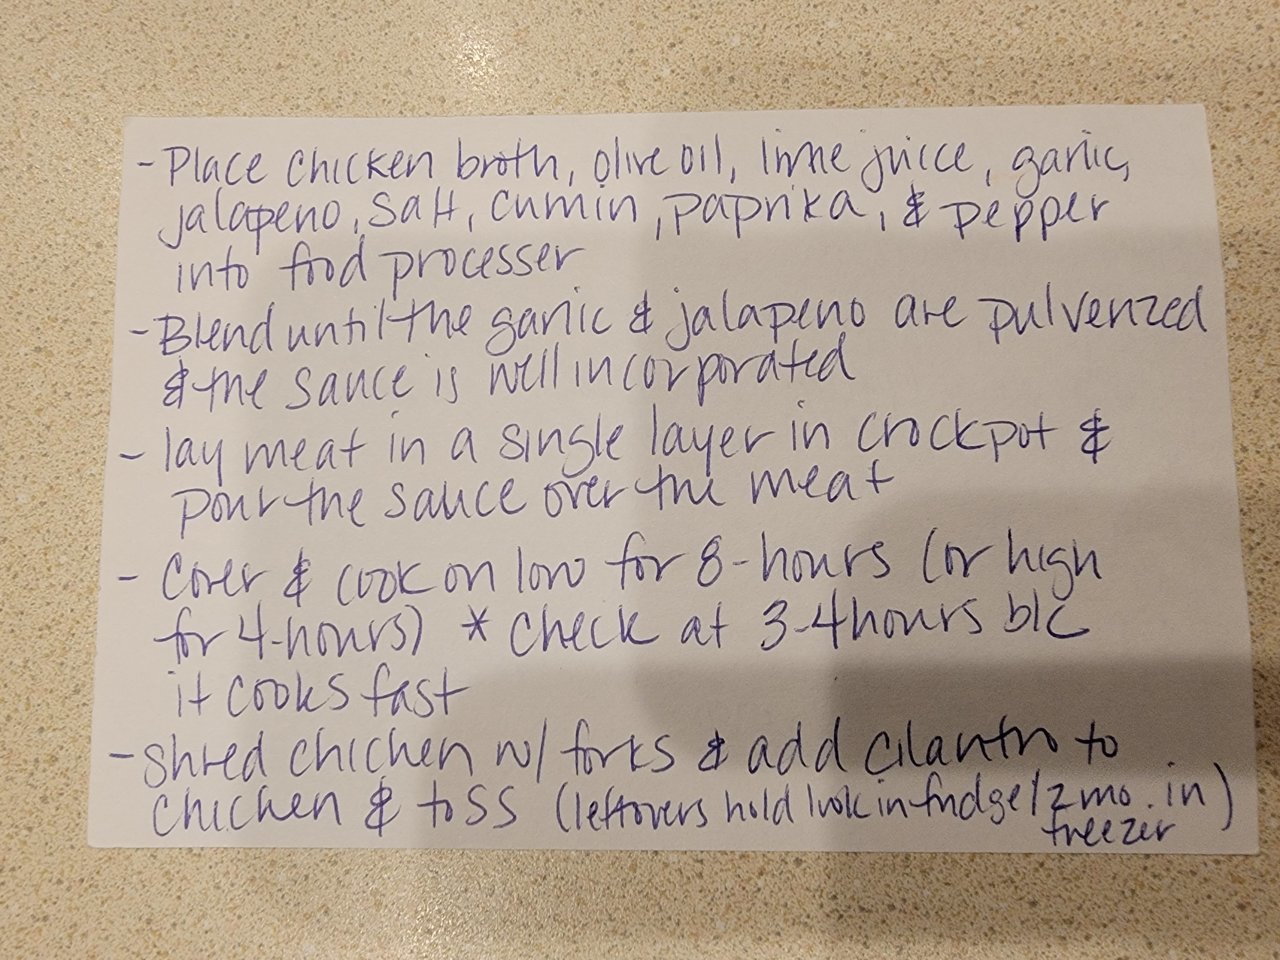 - Place chicken broth, olive oil, lime juice, garlic,
jalapeno, salt, cumin, paprika, & pepper
into food processer
- Blend until the garlic & jalapeno are pulverized
& the sauce is well incorporated
- lay meat in a single layer in crockpot &
pour the sauce over the meat
- Cover & cook on low for 8-hours (or high
for 4-hours) * check at 3-4 hours b/c
it cooks fast
- Shred chicken w/ forks & add cilantro to
chicken & toss (leftovers hold 1wk in fridge/2 mo. in
freezer)